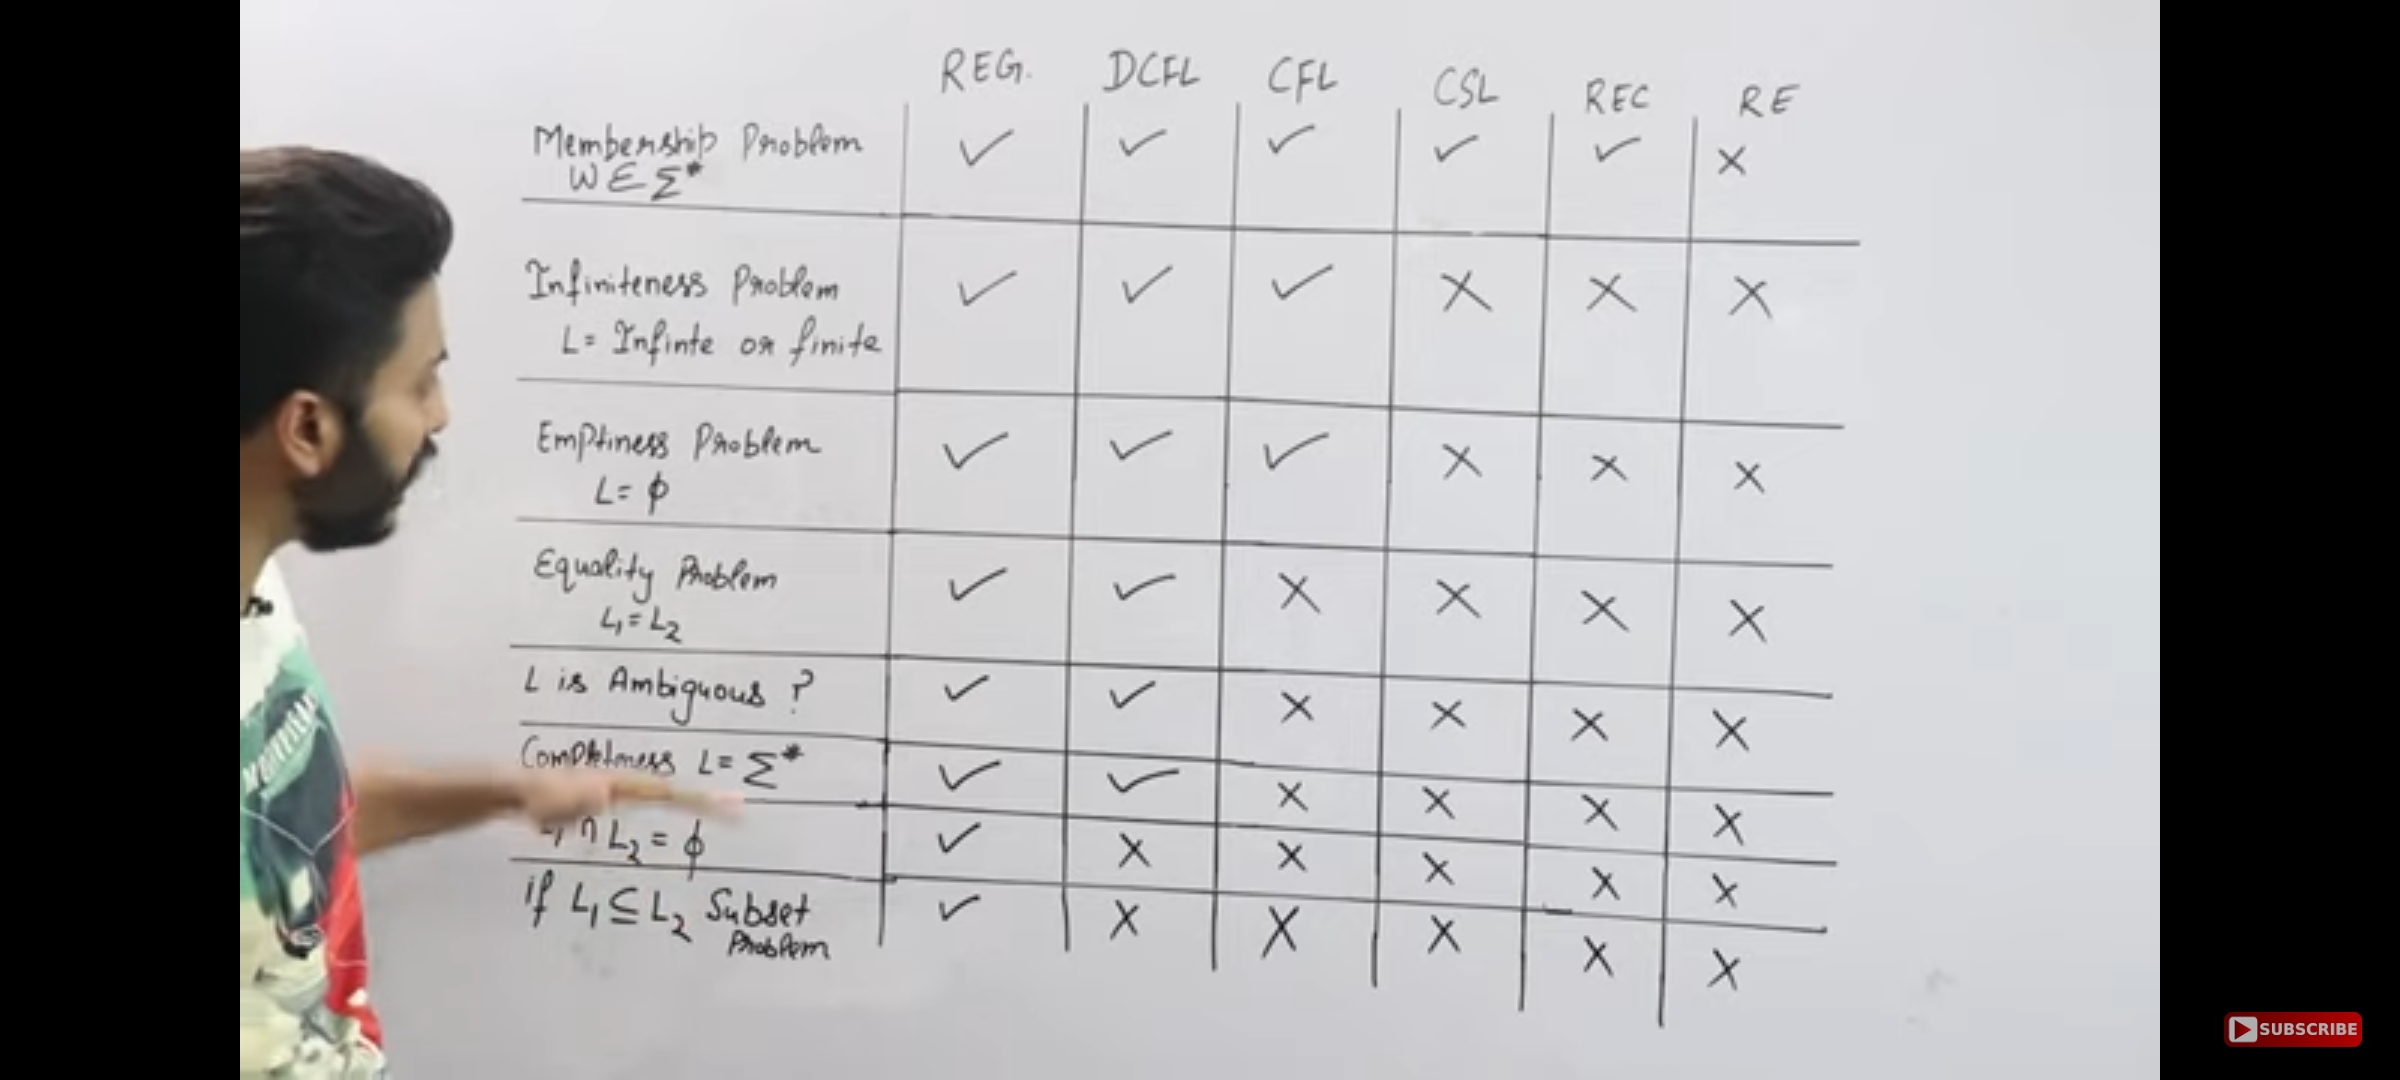 REG. DCFL CFL CSL REC RE
Membership Problem ✓ ✓ ✓ ✓ ✓ ×
W ∈ Σ*
Infiniteness Problem ✓ ✓ ✓ × × ×
L = Infinte or finite
Emptiness Problem ✓ ✓ ✓ × × ×
L = ϕ
Equality Problem ✓ ✓ × × × ×
L₁ = L₂
L is Ambiguous ? ✓ ✓ × × × ×
L = Σ* ✓ ✓ × × × ×
∩ L₂ = ϕ ✓ × × × × ×
if L₁ ⊆ L₂ Subset ✓ × × × × ×
Problem
SUBSCRIBE